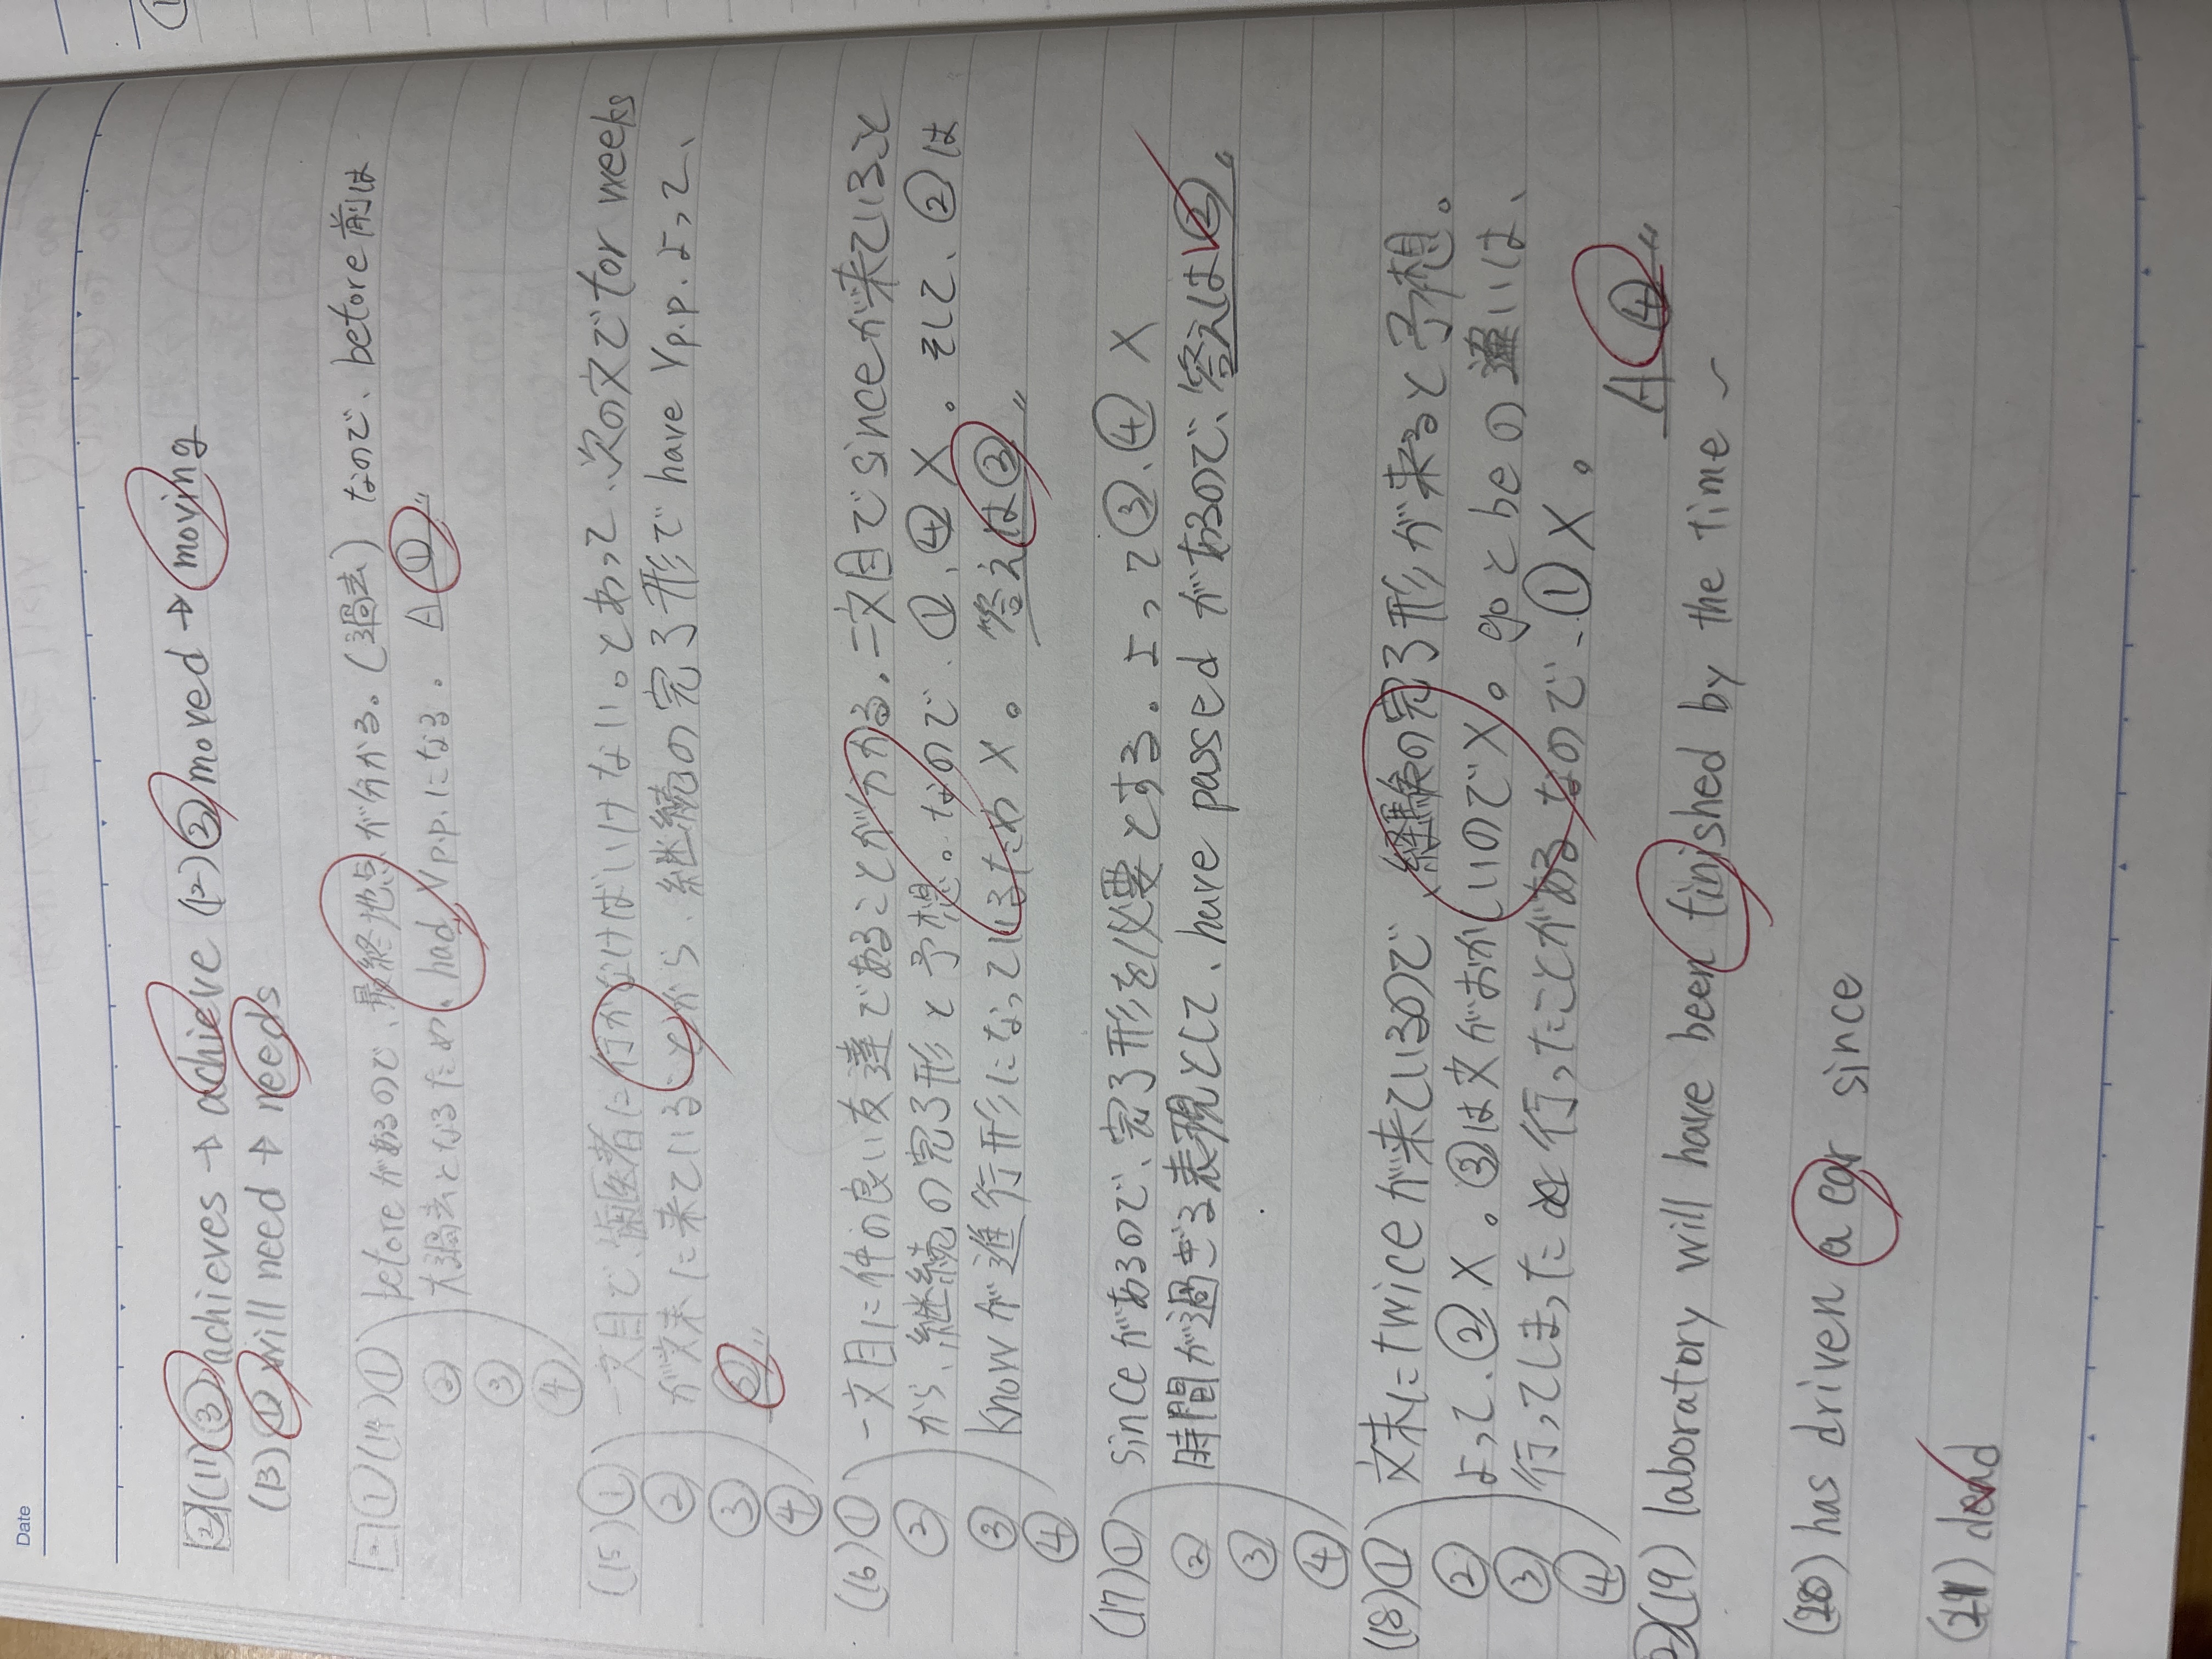 Date
2 (11) ③ achieves → achieve (12) ② moved → moving
(13) ① will need → needs
(14) ① beforeがあるので、最終地点が分かる。(過去) なので、before前は
② 大過去となるため、had Vp.p.になる。 A ①〃
③
④
(15) ① 一文目で、歯医者に行かなければいけない。とあって、次の文でfor weeks
② が文末に来ていることから、継続の完了形で have Vp.p. よって、
③ 〃
④
(16) ① 一文目に仲の良い友達であることが分かる。二文目でsinceが来ていること
② から、継続の完了形と予想。なので、①、④ X。そして、②は
③ knowが進行形になっているため X。 答えは③〃
④
(17) ① sinceがあるので、完了形を必要とする。よって③、④ X
② 時間が過ぎる表現として、have passed があるので、答えは②〃
③
④
(18) ① 文末にtwiceが来ているので、経験の完了形が来ると予想。
② よって、② X。③は文がおかしいのでX。goとbeの違いは、
③ 行ってしまった 行ったことがある なので、① X。
④ A ④〃
(19) laboratory will have been finished by the time ~
(20) has driven a car since
(21) dead